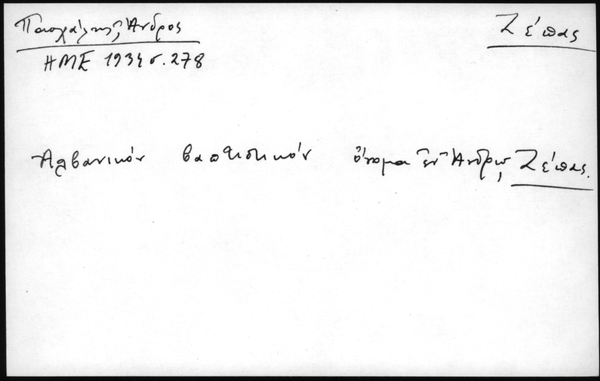 Πασχάλης, Άνδρος
Ζέπας
ΗΜΕ 1934 σ. 278
Αλβανικόν βαπτιστικόν όνομα εν Άνδρω, Ζέπας.